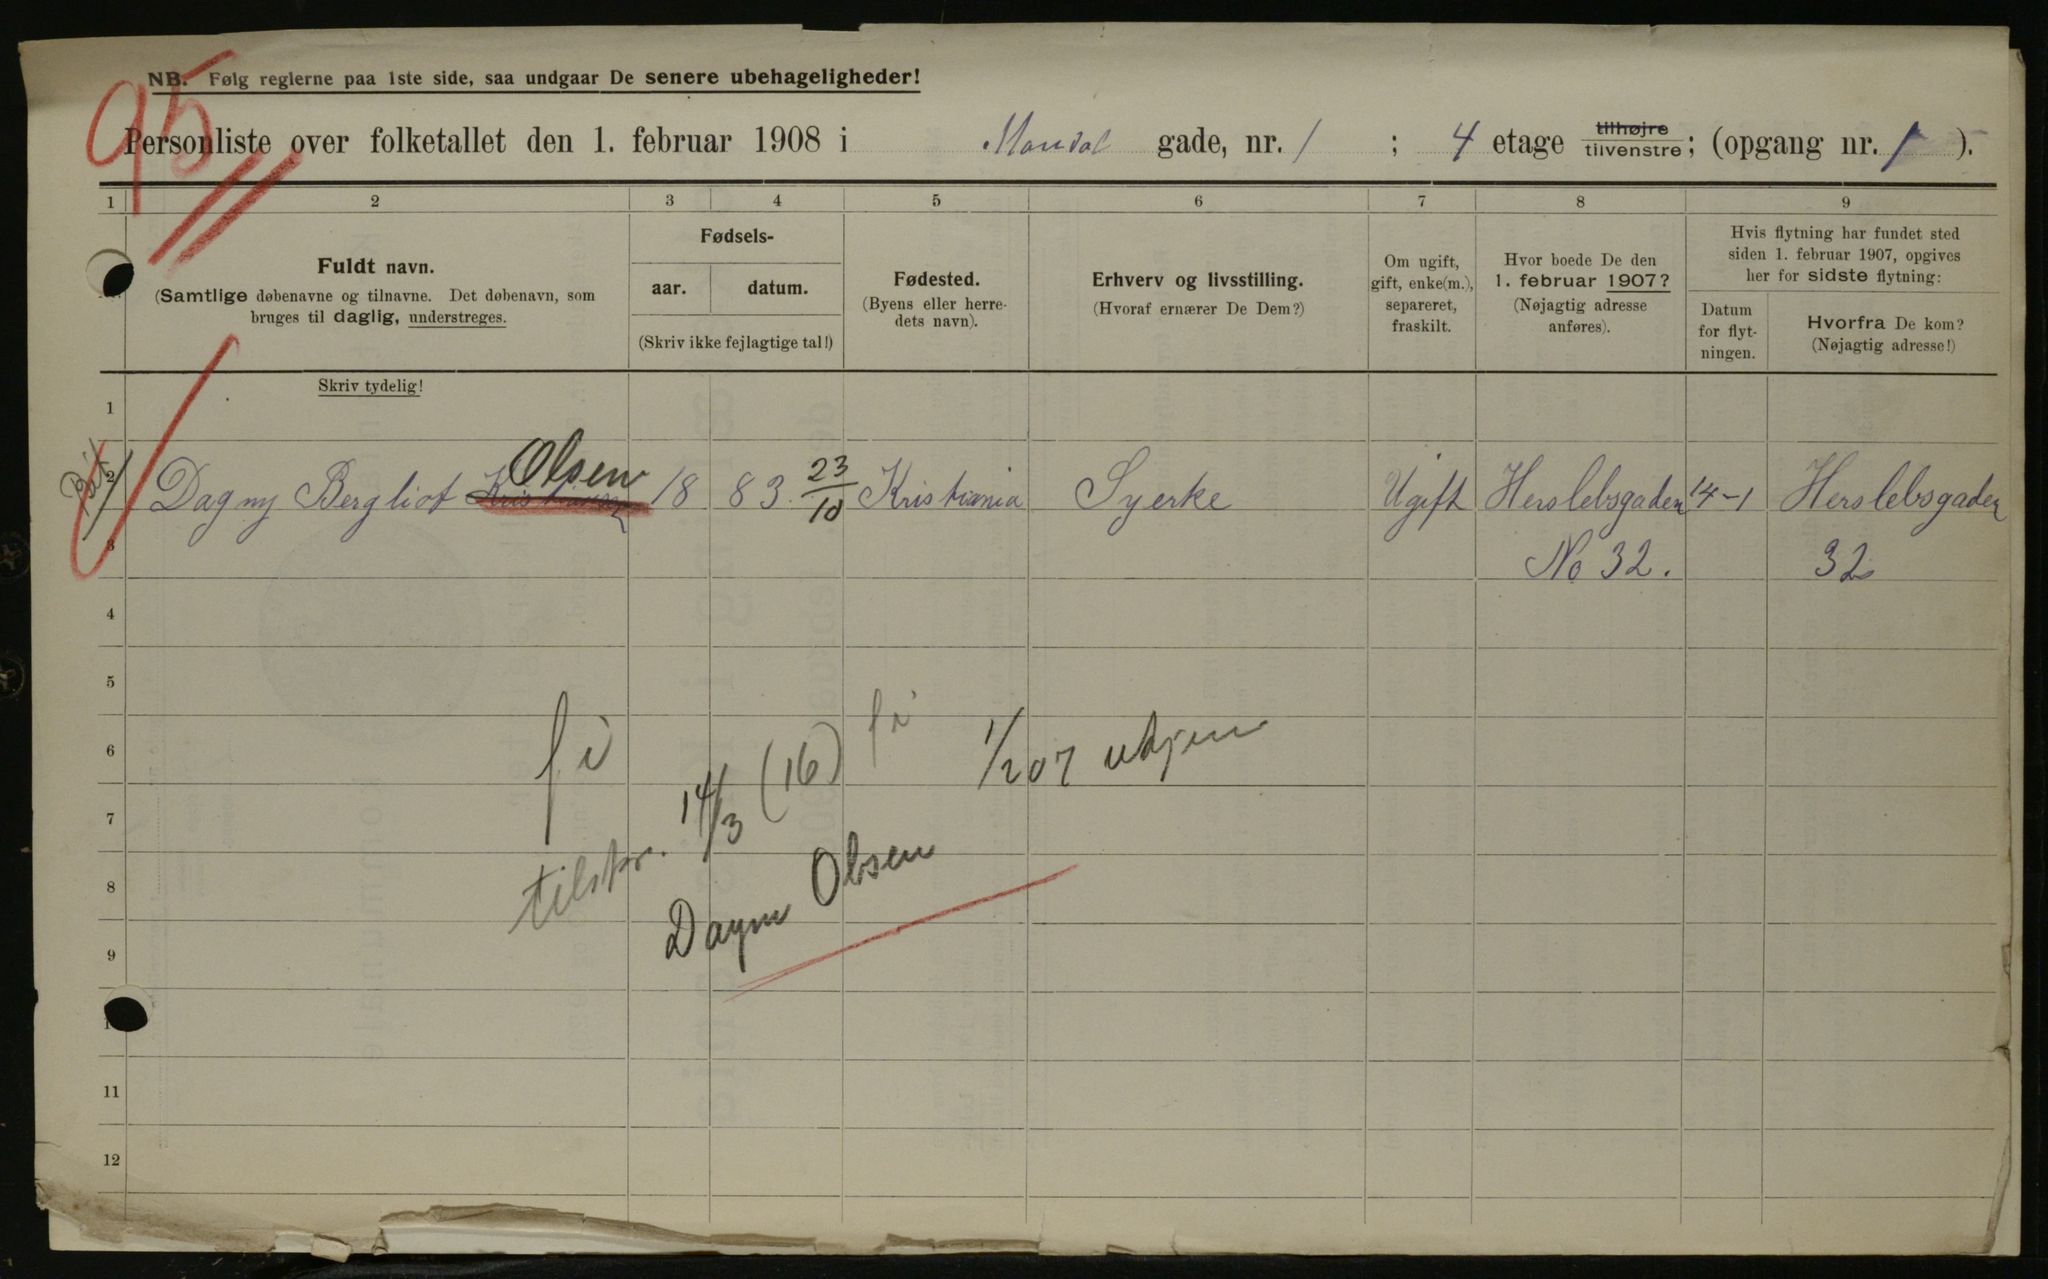 95
NB. Følg reglerne paa 1ste side, saa undgaar De senere ubehageligheder!
Personliste over folketallet den 1. februar 1908 i Mandal gade, nr. 1 ; 4 etage tilhøjre tilvenstre; (opgang nr. 1 ).
1 2 3 4 5 6 7 8 9
Fuldt navn.
(Samtlige døbenavne og tilnavne. Det døbenavn, som
bruges til daglig, understreges.
Skriv tydelig!
Fødsels-
aar. datum.
(Skriv ikke fejlagtige tal!)
Fødested.
(Byens eller herre-
dets navn).
Erhverv og livsstilling.
(Hvoraf ernærer De Dem?)
Om ugift,
gift, enke(m.),
separeret,
fraskilt.
Hvor boede De den
1. februar 1907?
(Nøjagtig adresse
anføres).
Hvis flytning har fundet sted
siden 1. februar 1907, opgives
her for sidste flytning:
Datum
for flyt-
ningen.
Hvorfra De kom?
(Nøjagtig adresse!)
1
Olsen
2 Dagny Bergliot Kristiansen 18 83. 23/10 Kristiania Syerke Ugift Herslebsgaden 14-1 Herslebsgaden
3 No 32. 32
4
5
6 fi 1/2 07 ukjen
7 tilskr. 14/3 (16) fi
8
9 Dagny Olsen
11
12